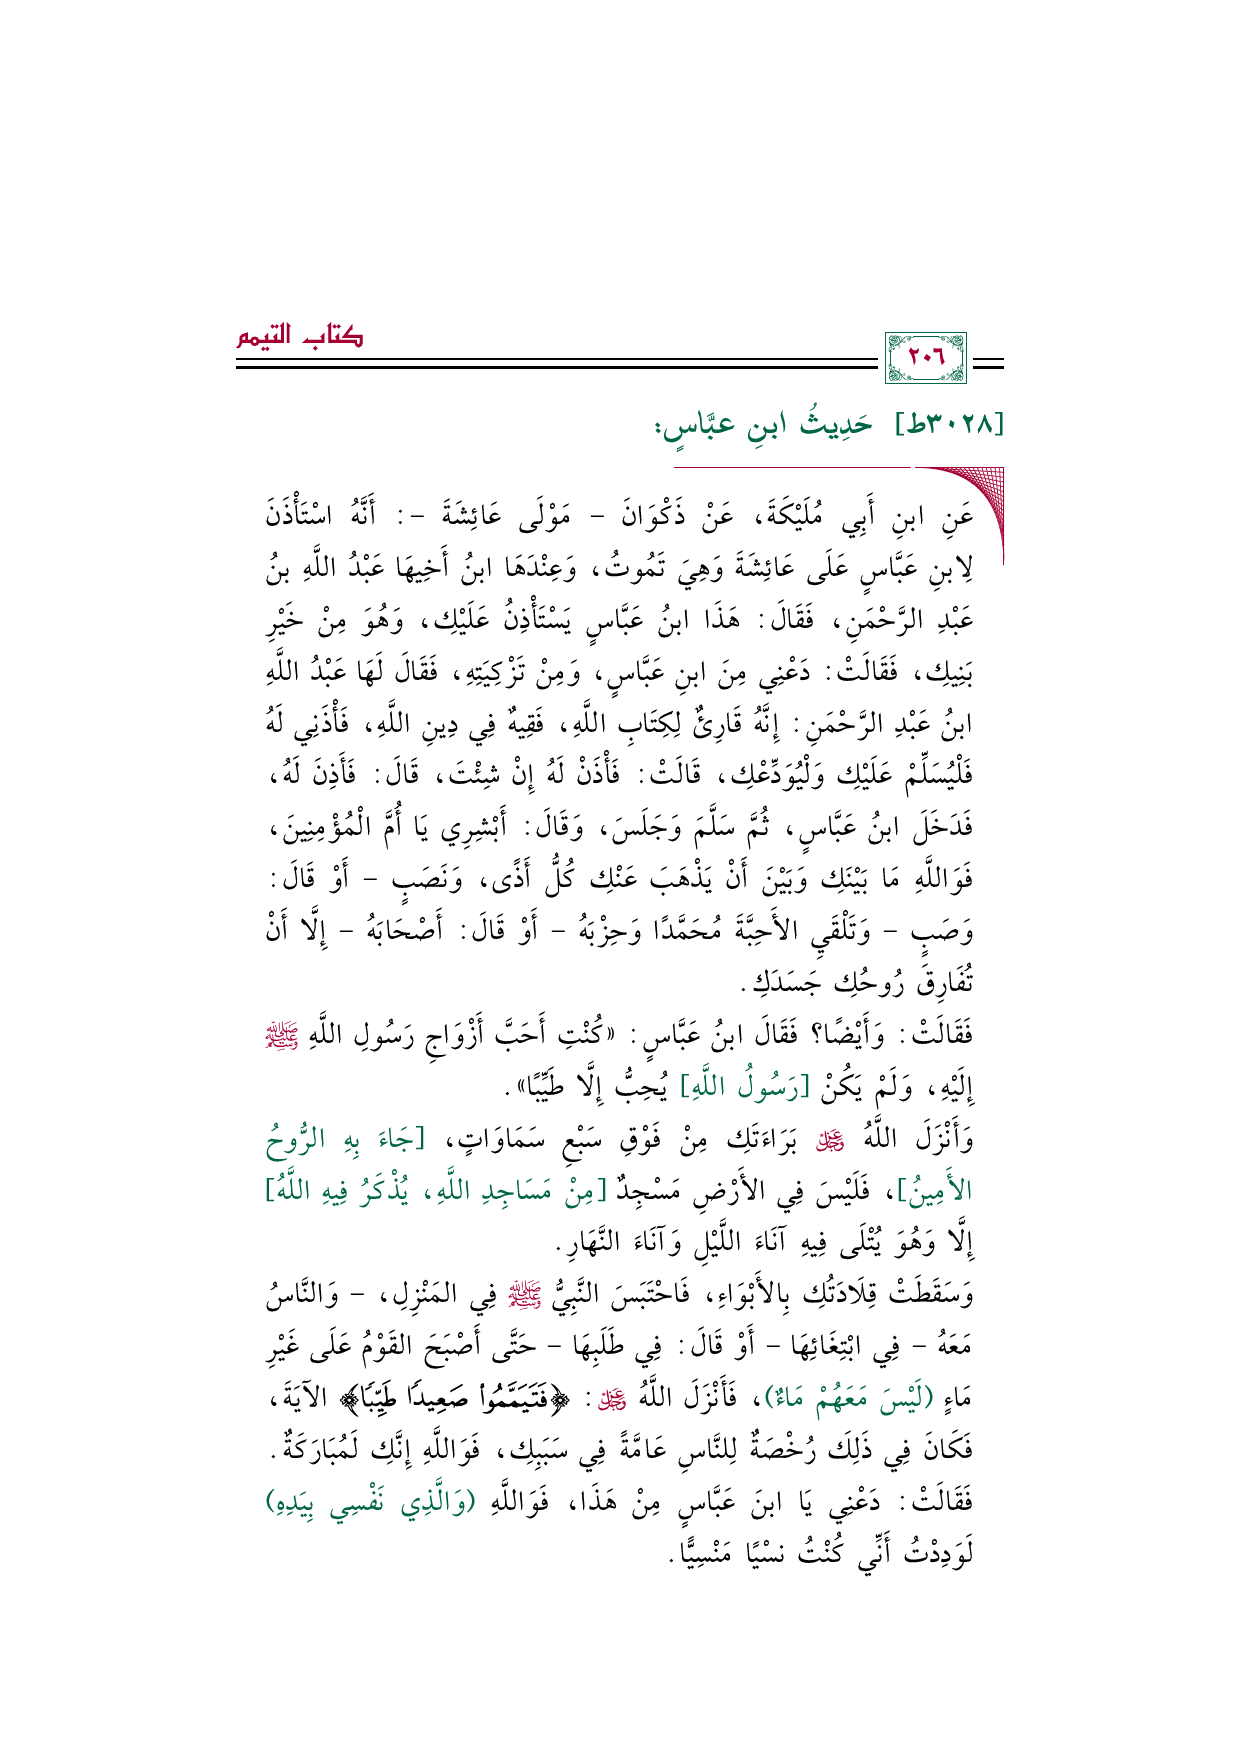 كتاب التيمم
٢٠٦
[٣٠٢٨ط] حَدِيثُ ابنِ عبَّاسٍ:
عَنِ ابنِ أَبِي مُلَيْكَةَ، عَنْ ذَكْوَانَ - مَوْلَى عَائِشَةَ -: أَنَّهُ اسْتَأْذَنَ
لِابنِ عَبَّاسٍ عَلَى عَائِشَةَ وَهِيَ تَمُوتُ، وَعِنْدَهَا ابنُ أَخِيهَا عَبْدُ اللَّهِ بنُ
عَبْدِ الرَّحْمَنِ، فَقَالَ: هَذَا ابنُ عَبَّاسٍ يَسْتَأْذِنُ عَلَيْكِ، وَهُوَ مِنْ خَيْرِ
بَنِيكِ، فَقَالَتْ: دَعْنِي مِنَ ابنِ عَبَّاسٍ، وَمِنْ تَزْكِيَتِهِ، فَقَالَ لَهَا عَبْدُ اللَّهِ
ابنُ عَبْدِ الرَّحْمَنِ: إِنَّهُ قَارِئٌ لِكِتَابِ اللَّهِ، فَقِيهٌ فِي دِينِ اللَّهِ، فَأْذَنِي لَهُ
فَلْيُسَلِّمْ عَلَيْكِ وَلْيُوَدِّعْكِ، قَالَتْ: فَأْذَنْ لَهُ إِنْ شِئْتَ، قَالَ: فَأَذِنَ لَهُ،
فَدَخَلَ ابنُ عَبَّاسٍ، ثُمَّ سَلَّمَ وَجَلَسَ، وَقَالَ: أَبْشِرِي يَا أُمَّ الْمُؤْمِنِينَ،
فَوَاللَّهِ مَا بَيْنَكِ وَبَيْنَ أَنْ يَذْهَبَ عَنْكِ كُلُّ أَذًى، وَنَصَبٍ - أَوْ قَالَ:
وَصَبٍ - وَتَلْقَيِ الأَحِبَّةَ مُحَمَّدًا وَحِزْبَهُ - أَوْ قَالَ: أَصْحَابَهُ - إِلَّا أَنْ
تُفَارِقَ رُوحُكِ جَسَدَكِ.
فَقَالَتْ: وَأَيْضًا؟ فَقَالَ ابنُ عَبَّاسٍ: «كُنْتِ أَحَبَّ أَزْوَاجِ رَسُولِ اللَّهِ ﷺ
إِلَيْهِ، وَلَمْ يَكُنْ [رَسُولُ اللَّهِ] يُحِبُّ إِلَّا طَيِّبًا».
وَأَنْزَلَ اللَّهُ ﷿ بَرَاءَتَكِ مِنْ فَوْقِ سَبْعِ سَمَاوَاتٍ، [جَاءَ بِهِ الرُّوحُ
الأَمِينُ]، فَلَيْسَ فِي الأَرْضِ مَسْجِدٌ [مِنْ مَسَاجِدِ اللَّهِ، يُذْكَرُ فِيهِ اللَّهُ]
إِلَّا وَهُوَ يُتْلَى فِيهِ آنَاءَ اللَّيْلِ وَآنَاءَ النَّهَارِ.
وَسَقَطَتْ قِلَادَتُكِ بِالأَبْوَاءِ، فَاحْتَبَسَ النَّبِيُّ ﷺ فِي المَنْزِلِ، - وَالنَّاسُ
مَعَهُ - فِي ابْتِغَائِهَا - أَوْ قَالَ: فِي طَلَبِهَا - حَتَّى أَصْبَحَ القَوْمُ عَلَى غَيْرِ
مَاءٍ (لَيْسَ مَعَهُمْ مَاءٌ)، فَأَنْزَلَ اللَّهُ ﷿: ﴿فَتَيَمَّمُواْ صَعِيدًا طَيِّبًا﴾ الآيَةَ،
فَكَانَ فِي ذَلِكَ رُخْصَةٌ لِلنَّاسِ عَامَّةً فِي سَبَبِكِ، فَوَاللَّهِ إِنَّكِ لَمُبَارَكَةٌ.
فَقَالَتْ: دَعْنِي يَا ابنَ عَبَّاسٍ مِنْ هَذَا، فَوَاللَّهِ (وَالَّذِي نَفْسِي بِيَدِهِ)
لَوَدِدْتُ أَنِّي كُنْتُ نسْيًا مَنْسِيًّا.